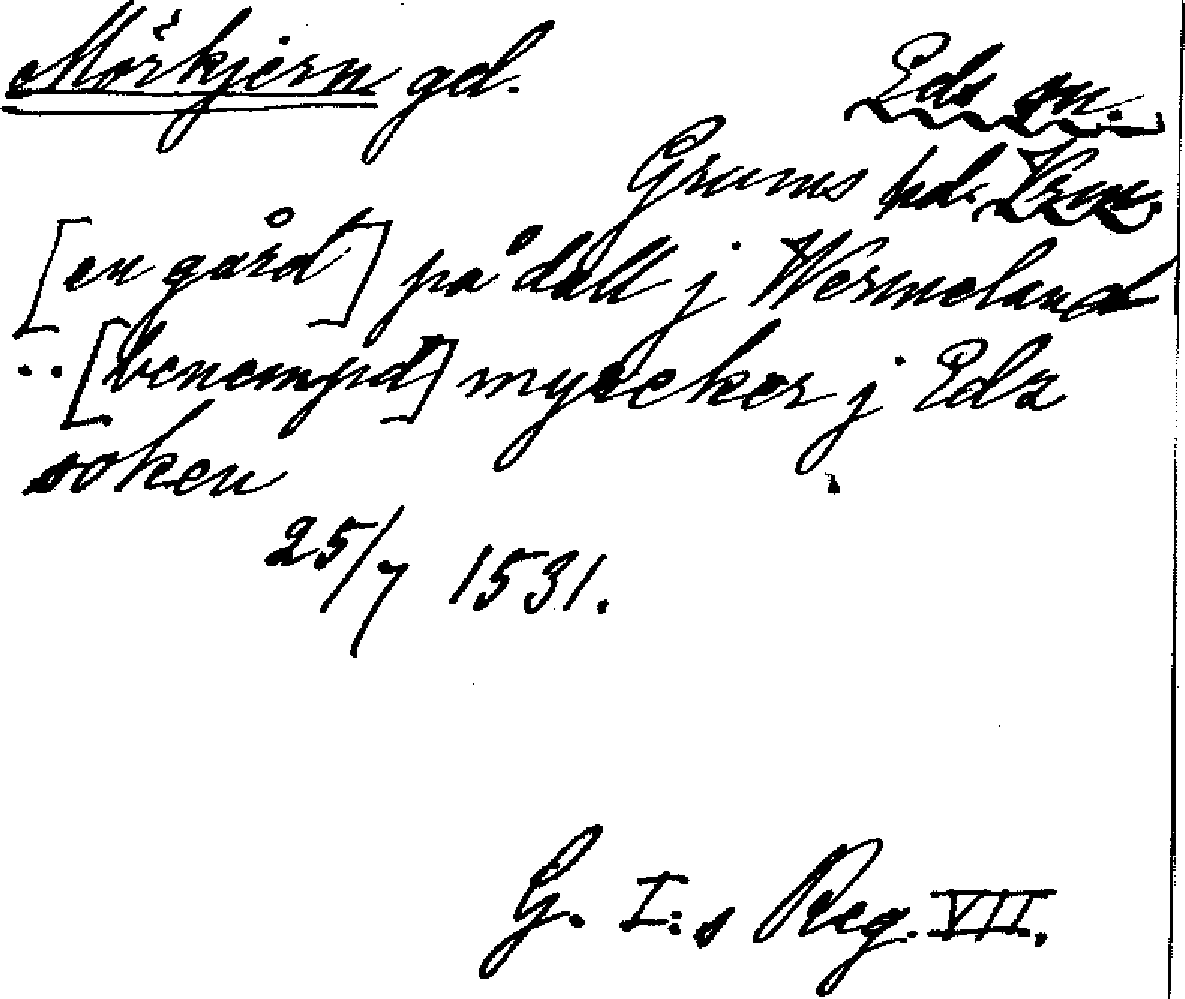 Mörkjern gd.
Eds sn.
Grums hd. Vrm.
[en gård] på dall j Wermeland
.. [benempd] myrcker j Edz
soken
25/7 1531.
G. I:s Reg. VII.